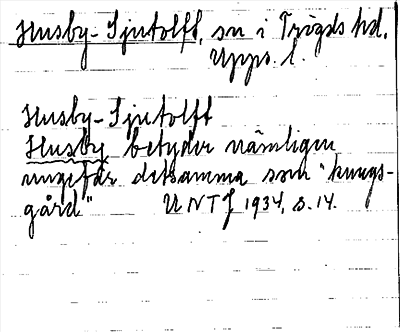 Husby-Sjutolft, sn i Trögds hd,
Upps. l.
Husby-Sjutolft
Husby betyder nämligen
ungefär detsamma som "kungs-
gård" UNTJ 1934, s. 14.